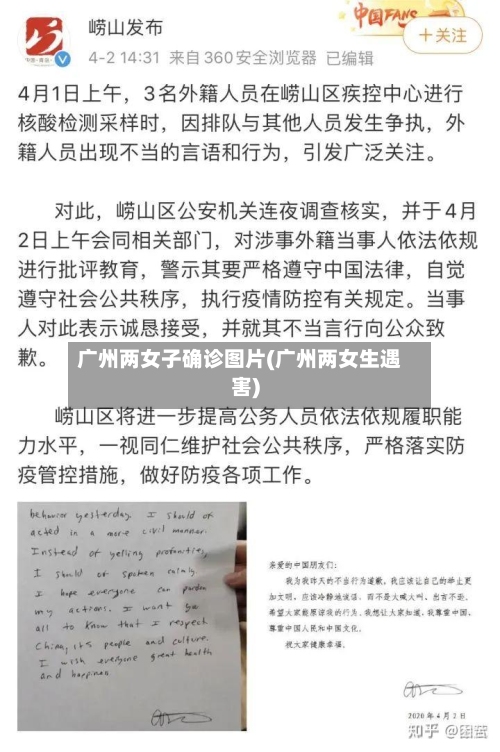 崂山发布
中国FANS
4-2 14:31 来自360安全浏览器 已编辑
+关注
4月1日上午，3名外籍人员在崂山区疾控中心进行
核酸检测采样时，因排队与其他人员发生争执，外
籍人员出现不当的言语和行为，引发广泛关注。
对此，崂山区公安机关连夜调查核实，并于4月
2日上午会同相关部门，对涉事外籍当事人依法依规
进行批评教育，警示其要严格遵守中国法律，自觉
遵守社会公共秩序，执行疫情防控有关规定。当事
人对此表示诚恳接受，并就其不当言行向公众致
歉。
广州两女子确诊图片(广州两女生遇
害)
崂山区将进一步提高公务人员依法依规履职能
力水平，一视同仁维护社会公共秩序，严格落实防
疫管控措施，做好防疫各项工作。
behavior yesterday. I should of
acted in a more civil manner.
Instead of yelling profanities,
I should of spoken calmly.
I hope everyone can pardon
my actions. I want you
all to know that I respect
China, its people and culture.
I wish everyone great health
and happiness
亲爱的中国朋友们：
我为我昨天的不当行为道歉，我应该让自己的举止更
加文明，应该冷静地说话，而不是大喊大叫、出言不逊。
希望大家能原谅我的行为。我想让大家知道，我尊重中国、
尊重中国人民和中国文化。
祝大家健康幸福。
2020年4月2日
知乎